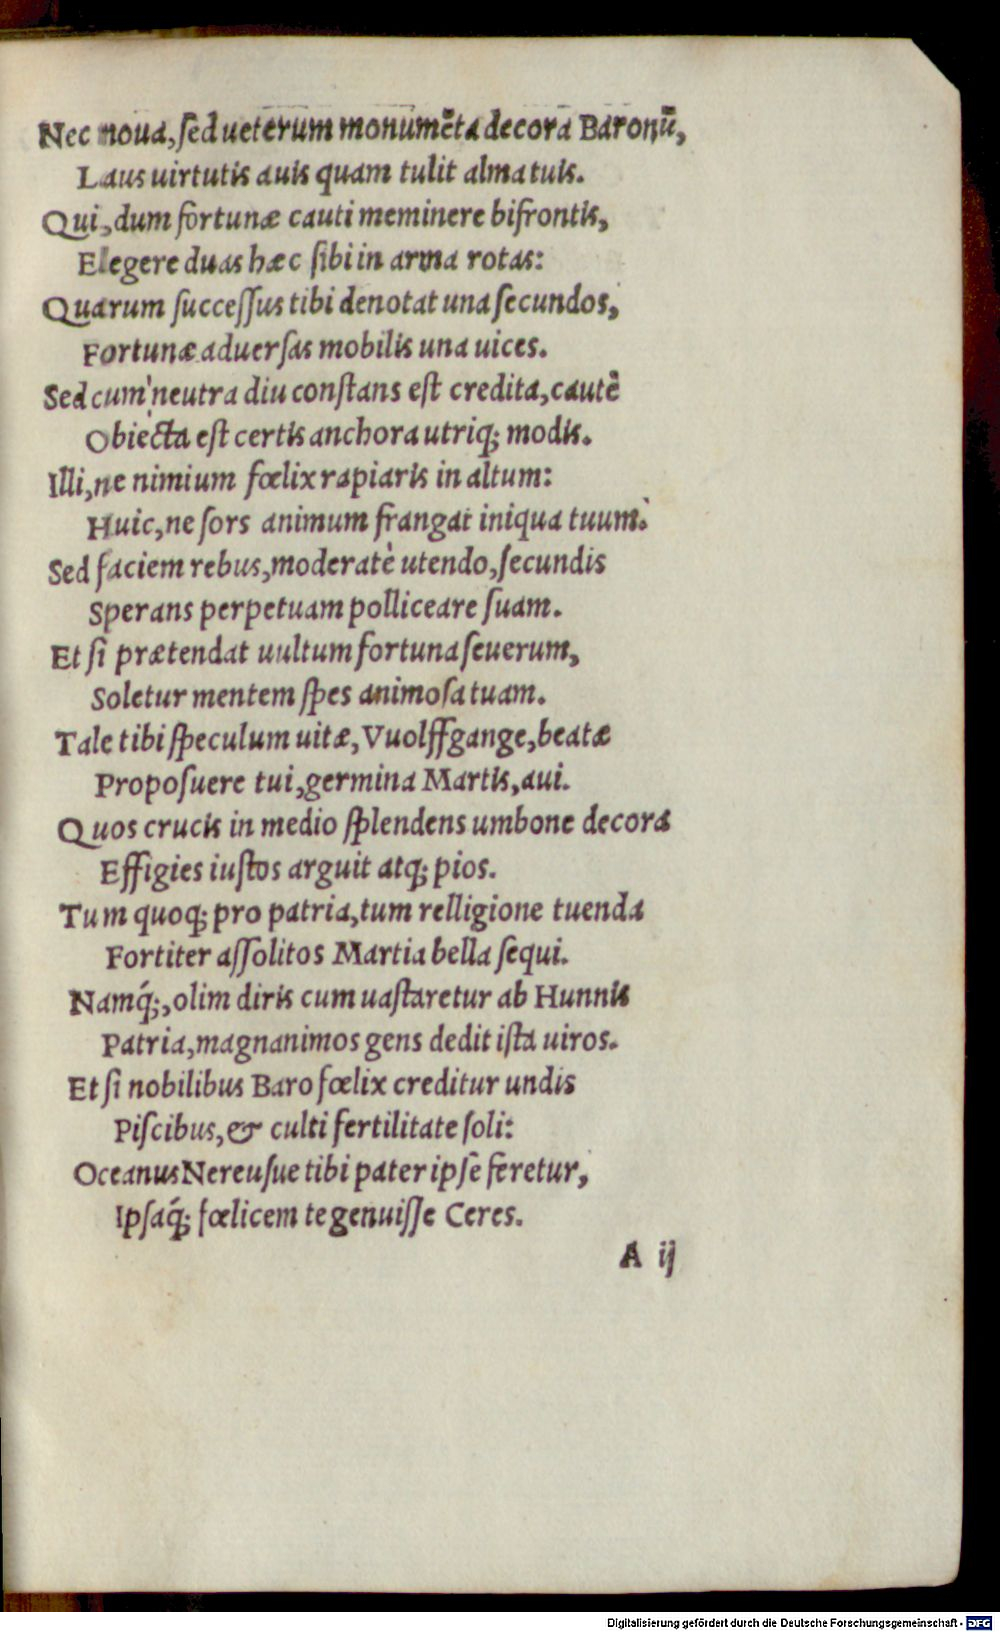 Nec noua, sed ueterum monumẽta decora Baronũ,
Laus uirtutis auis quam tulit alma tuis.
Qui, dum fortunæ cauti meminere bifrontis,
Elegere duas hæc sibi in arma rotas:
Quarum successus tibi denotat una secundos,
Fortunæ aduersas mobilis una uices.
Sed cum neutra diu constans est credita, cautè
Obiecta est certis anchora utriq; modis.
Illi, ne nimium fœlix rapiaris in altum:
Huic, ne sors animum frangat iniqua tuum.
Sed faciem rebus, moderatè utendo, secundis
Sperans perpetuam polliceare suam.
Et si prætendat uultum fortuna seuerum,
Soletur mentem spes animosa tuam.
Tale tibi speculum uitæ, Vuolffgange, beatæ
Proposuere tui, germina Martis, aui.
Quos crucis in medio splendens umbone decora
Effigies iustos arguit atq; pios.
Tum quoq; pro patria, tum relligione tuenda
Fortiter assolitos Martia bella sequi.
Namq́;, olim diris cum uastaretur ab Hunnis
Patria, magnanimos gens dedit ista uiros.
Et si nobilibus Baro fœlix creditur undis
Piscibus, & culti fertilitate soli:
Oceanus Nereusue tibi pater ipse feretur,
Ipsaq́; fœlicem te genuisse Ceres.
A ij
Digitalisierung gefördert durch die Deutsche Forschungsgemeinschaft - DFG